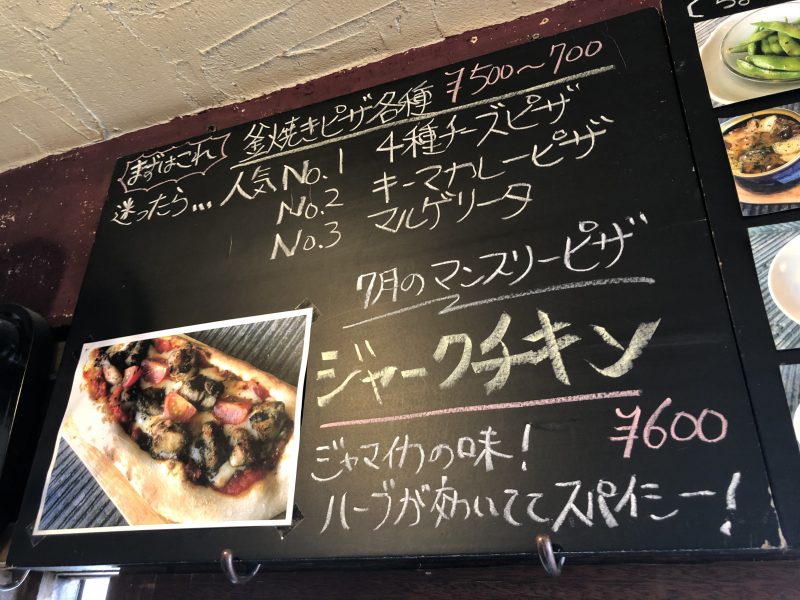 まずはこれ 釜焼きピザ各種 ¥500〜700
迷ったら... 人気No.1 4種チーズピザ
No.2 キーマカレーピザ
No.3 マルゲリータ
7月のマンスリーピザ
ジャークチキン
¥600
ジャマイカの味!
ハーブが効いててスパイシー!